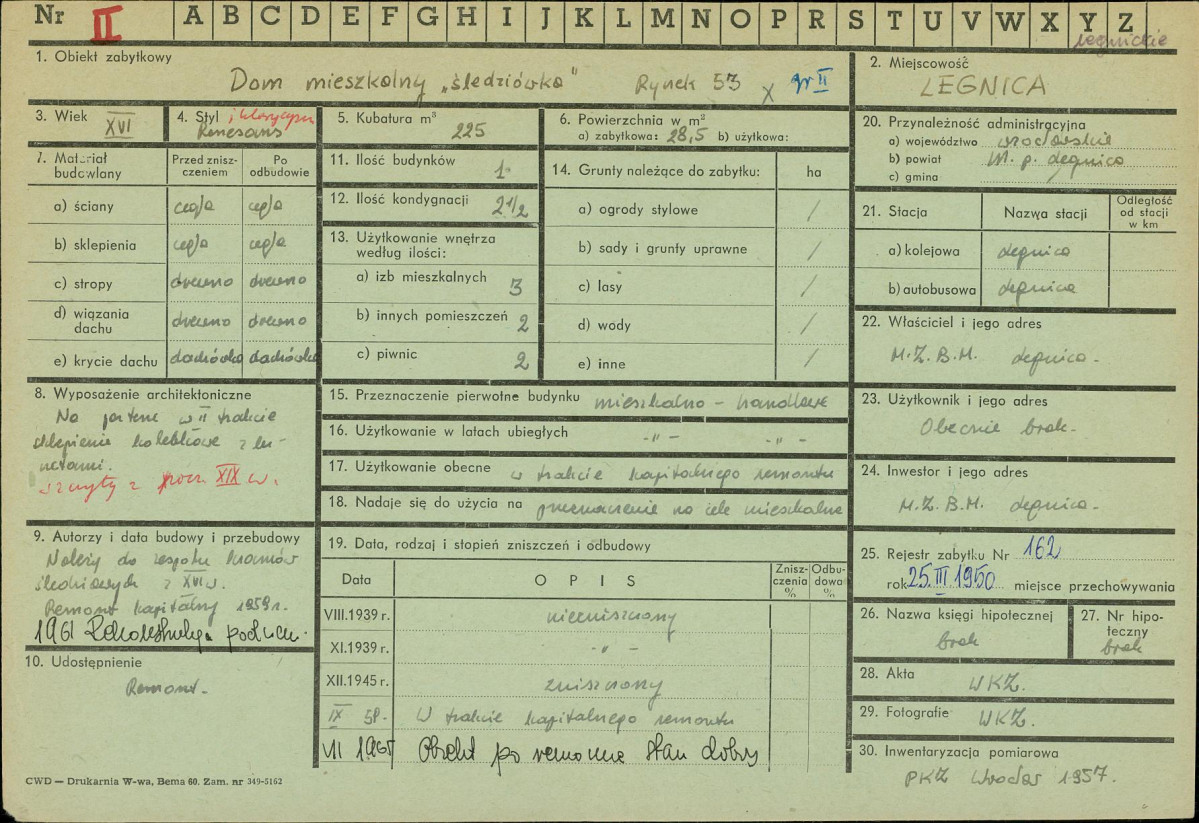 Nr II A B C D E F G H I J K L M N O P R S T U V W X Y Z
legnickie
1. Obiekt zabytkowy
Dom mieszkalny „śledziówka" Rynek 53 x gr II
2. Miejscowość
LEGNICA
3. Wiek
XVI
4. Styl i klasycyzm
Renesans
5. Kubatura m³
225
6. Powierzchnia w m²
a) zabytkowa: 28,5 b) użytkowa:
20. Przynależność administracyjna
a) województwo wrocławskie
b) powiat M. p. Legnica
c) gmina
7. Materiał budowlany
Przed zniszczeniem
Po odbudowie
a) ściany cegła cegła
b) sklepienia cegła cegła
c) stropy drewno drewno
d) wiązania dachu drewno drewno
e) krycie dachu dachówka dachówka
11. Ilość budynków 1
12. Ilość kondygnacji 2 1/2
13. Użytkowanie wnętrza
według ilości:
a) izb mieszkalnych 3
b) innych pomieszczeń 2
c) piwnic 2
14. Grunty należące do zabytku: ha
a) ogrody stylowe /
b) sady i grunty uprawne /
c) lasy /
d) wody /
e) inne /
21. Stacja Nazwa stacji Odległość od stacji w km
a) kolejowa Legnica
b) autobusowa Legnica
22. Właściciel i jego adres
M.Z.B.M. Legnica -
8. Wyposażenie architektoniczne
Na parterze w II trakcie
sklepienie kolebkowe z lu-
netami.
szczyty z pocz. XIX w.
15. Przeznaczenie pierwotne budynku mieszkalno - handlowe
16. Użytkowanie w latach ubiegłych -"- -"-
17. Użytkowanie obecne w trakcie kapitalnego remontu
18. Nadaje się do użycia na przeznaczenie na cele mieszkalne
23. Użytkownik i jego adres
Obecnie brak-
24. Inwestor i jego adres
M.Z.B.M. Legnica -
9. Autorzy i data budowy i przebudowy
Należy do zespołu kramów
śledziowych z XVI w.
Remont kapitalny 1959 r.
1961
10. Udostępnienie
Remont.
19. Data, rodzaj i stopień zniszczeń i odbudowy
Data OPIS Zniszczenia % Odbudowa %
VIII.1939 r. niezniszczony
XI.1939 r. -"-
XII.1945 r. zniszczony
IX 58. W trakcie kapitalnego remontu
VII 1965 Obiekt po remoncie stan dobry
25. Rejestr zabytku Nr 162
rok 25.III 1950 miejsce przechowywania
26. Nazwa księgi hipotecznej
brak
27. Nr hipoteczny
brak
28. Akta WKZ.
29. Fotografie WKZ.
30. Inwentaryzacja pomiarowa
PKZ Wrocław 1957.
CWD — Drukarnia W-wa, Bema 60. Zam. nr 349-5162